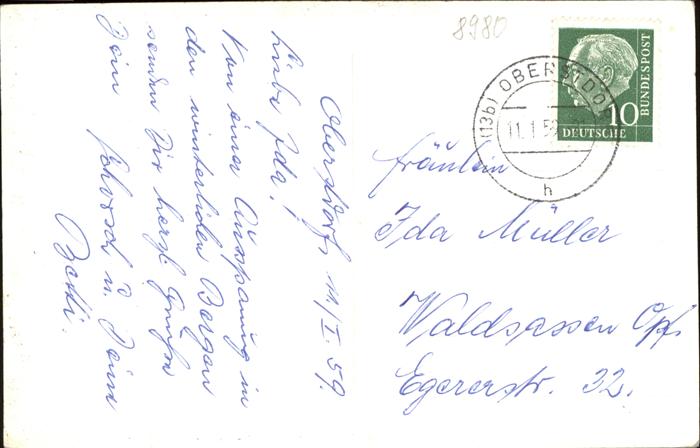 Oberstdorf, 11/I.59.
Liebe Ida!
Von einer Ausspannung in
den winterlichen Bergen
senden Dir herzl. Grüße
Dein Schorsch u. Deine
Betti.
8980
(13b) OBERSTDO
11.1.59
h
10
DEUTSCHE
BUNDESPOST
Fräulein
Ida Müller
Waldsassen Opf.
Egererstr. 32.